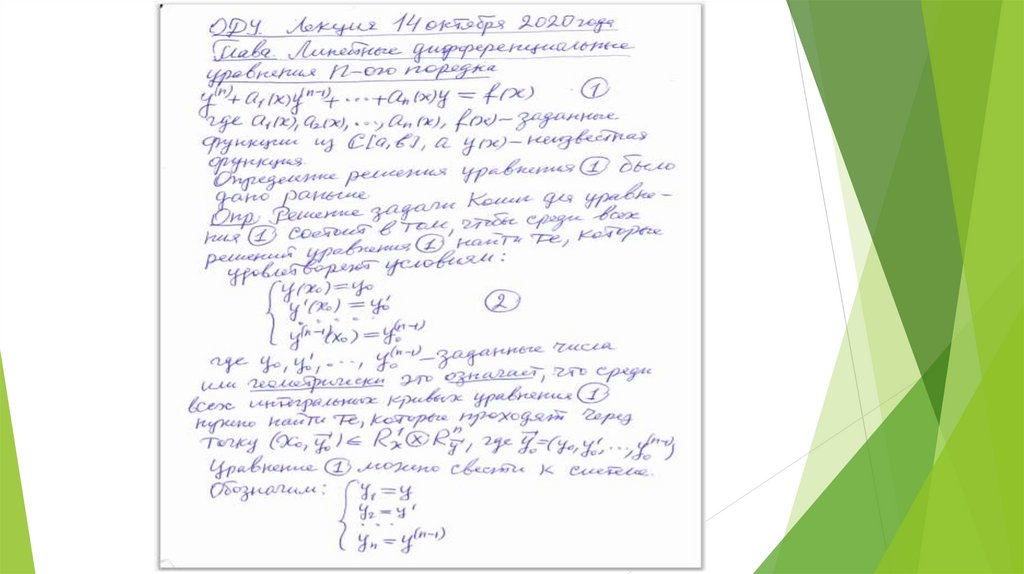 ОДУ. Лекция 14 октября 2020 года
Глава Линейные дифференциальные
уравнения n-ого порядка
y⁽ⁿ⁾+a₁(x)y⁽ⁿ⁻¹⁾+...+aₙ(x)y = f(x) ①
где a₁(x), a₂(x), ..., aₙ(x), f(x) – заданные
функции из C[a,b], а y(x) – неизвестная
функция.
Определение решения уравнения ① было
дано раньше
Опр Решение задачи Коши для уравне-
ния ① состоит в том, чтобы среди всех
решений уравнения ① найти те, которые
удовлетворяют условиям:
y(x₀)=y₀
y'(x₀) = y₀'
. . . . .
y⁽ⁿ⁻¹⁾(x₀)=y₀⁽ⁿ⁻¹⁾
②
где y₀, y₀', ..., y₀⁽ⁿ⁻¹⁾ – заданные числа
или геометрически это означает, что среди
всех интегральных кривых уравнения ①
нужно найти те, которые проходят через
точку (x₀, y⃗₀) ∈ R¹ₓ ⊗ Rⁿ_y⃗, где y⃗₀=(y₀, y₀', ..., y₀⁽ⁿ⁻¹⁾)
Уравнение ① можно свести к системе.
Обозначим: y₁ = y
y₂ = y'
. . .
yₙ = y⁽ⁿ⁻¹⁾